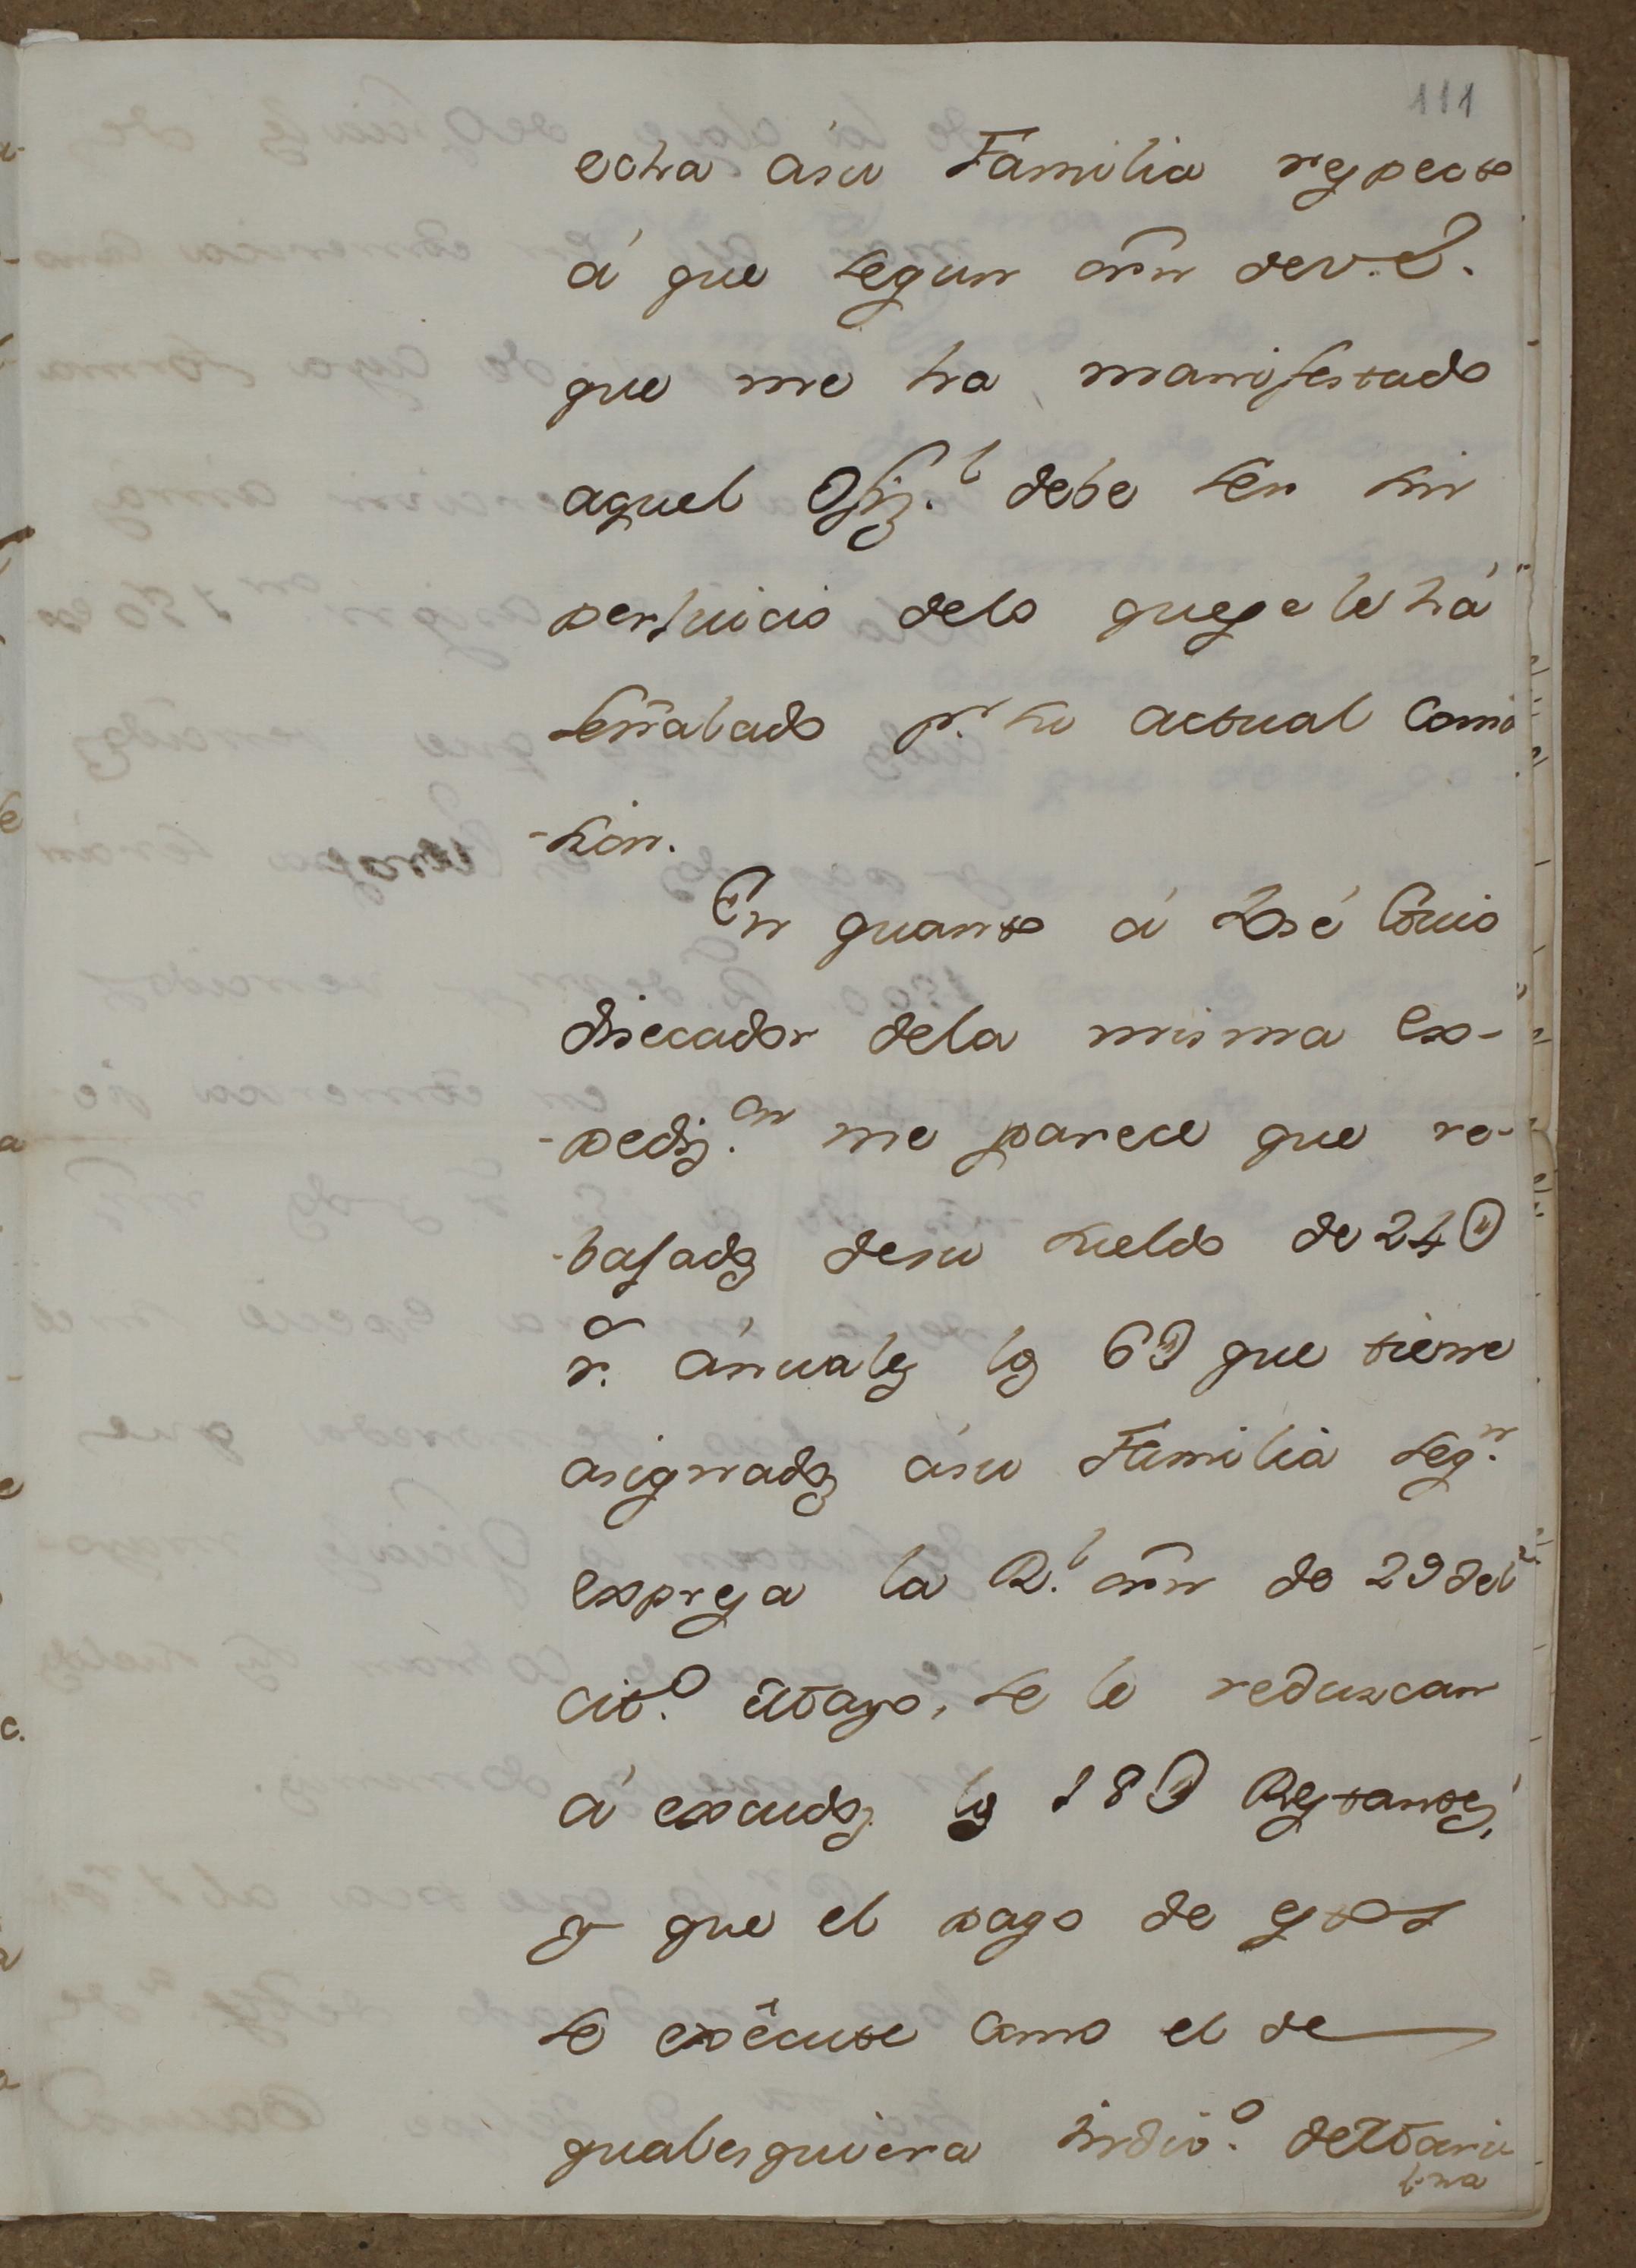 111
echa ásu Familia respecto
á que segun orñ dev.E.
que me ha manifestado
aquel Ofiz.l debe ser sin
perjuicio delo quese le há
señalado p.r su actual Comi
-sion.
En quanto á José Guio
disecador dela misma Ex-
-pediz.on me parece que re-
-bajados desu sueldo de 24@
r.s ánuales los 6@ que tiene
asignados ásu Familia seg.n
expresa la R.l orñ de 29 del
cit.o Mayo, se le reduzcan
á escudos los 18@ Restantes,
y que el pago de estos
se exêcute como el de
qualesquiera indiv.o de Mari
na